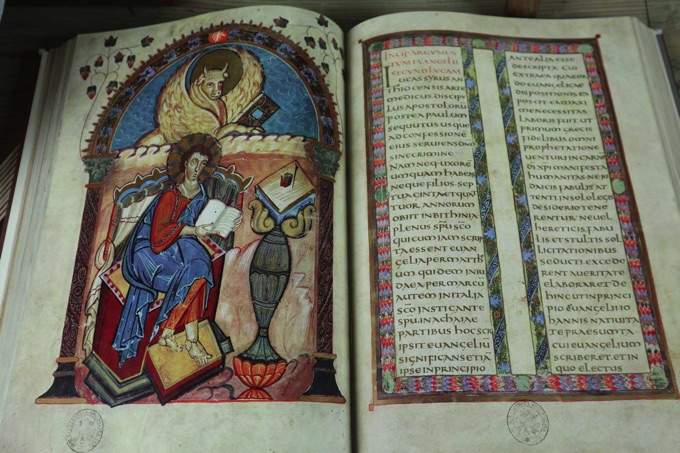 INCIP ARGUMEN
TUM EVANGELII
SECUND LUCAM
LUCAS SYRUS AN
THIOCENSIS ARTE
MEDICUS DISCIP
LUS APOSTOLORU
POSTEA PAULUM
SEQUUTUS USQUE
AD CONFESSIONĒ
EIUS SERUIENS DNO
SINE CRIMINE
NAM NEQ UXORĒ
UMQUAM HABENS
NEQUE FILIOS SEP
TUAGINTA ET
TUOR ANNORUM
OBIIT IN BITHINIA
PLENUS SPU SCO
QUI CUM IAM SCRIP
TA ESSENT EUAN
GELIA PER
UM QUIDEM IN IU
DAEA PER MARCU
AUTEM IN ITALIA
SCO INSTIGANTE
SPU IN ACHAIAE
PARTIBUS HOC SCR
IPSIT EUANGELIŪ
SIGNIFICANS ETIĀ
IPSE IN PRINCIPIO
ANTE ALIA ESSE
DESCRIPTA CUI
EXTRA EA QUAE OR
DO EUANGELICAE
DISPOSITIONIS EX
POSCIT EA MAXI
ME NECESSITAS
LABORIS FUIT UT
PRIMUM GRECIS
FIDELIBUS OMNI
PROPHETATIONE
UENTURI IN CARNĒ
DI XPI MANIFESTA
HUMANITAS NE IU
DAICIS FABULIS AT
TENTI IN SOLO LEGIS
DESIDERIO TENE
RENTUR NE UEL
HERETICIS FABU
LIS ET STULTIS SOL
LICITATIONIBUS
SEDUCTI EXCEDE
RENT A UERITATE
ELABORARET DE
HINC UT IN PRINCI
PIO EUANGELII IO
HANNIS NATIUITA
TE PRAESUMTA
CUI EUANGELIUM
SCRIBERET ET IN
QUO ELECTUS